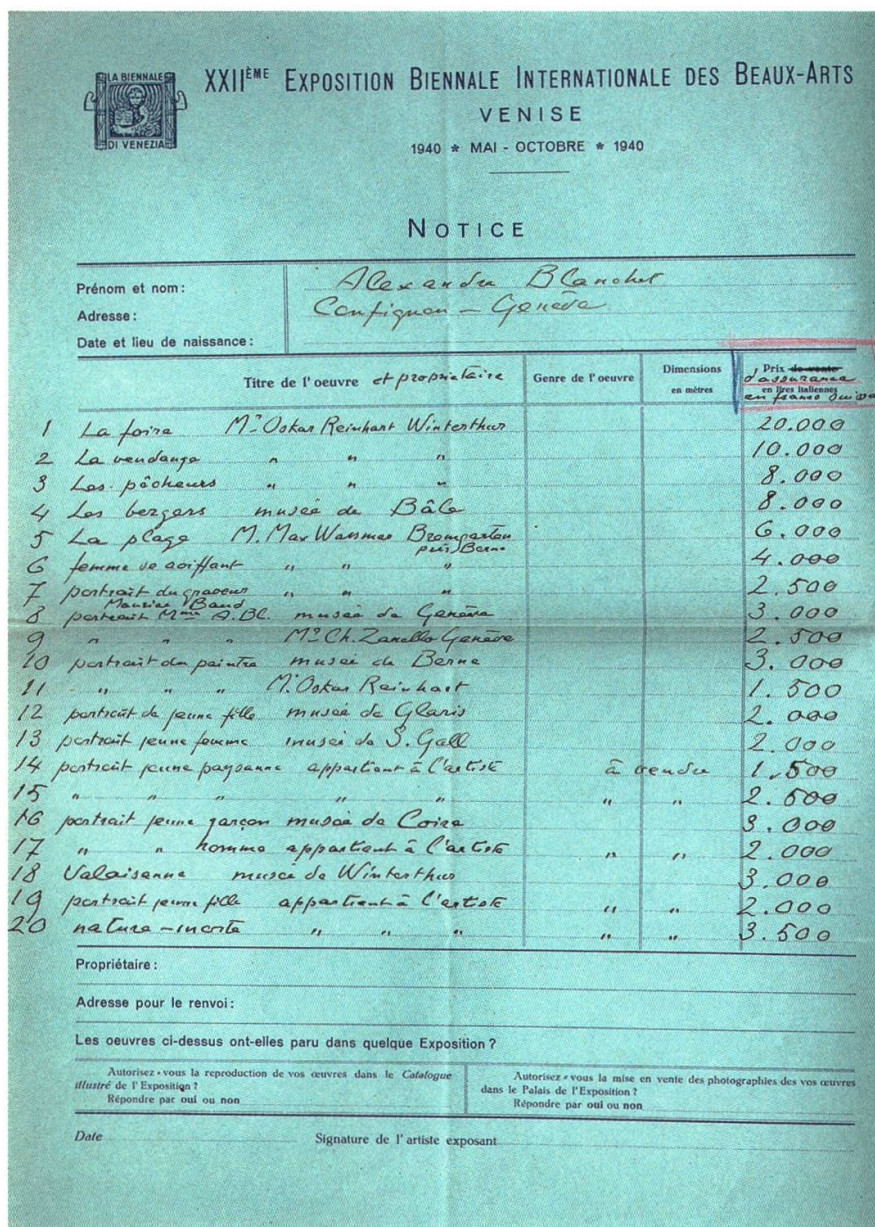 LA BIENNALE
DI VENEZIA
XXIIÈME EXPOSITION BIENNALE INTERNATIONALE DES BEAUX-ARTS
VENISE
1940 * MAI - OCTOBRE * 1940
NOTICE
Prénom et nom: Alexandre Blanchet
Adresse: Confignon - Genève
Date et lieu de naissance:
Titre de l'oeuvre et propriétaire Genre de l'oeuvre Dimensions en mètres Prix de vente d'assurance en lires italiennes en francs suisses
1 La foire Mr Oskar Reinhart Winterthur 20.000
2 La vendange " " " 10.000
3 Les pêcheurs " " " 8.000
4 Les bergers musée de Bâle 8.000
5 La plage M. Max Wassmer Bremgarten près Berne 6.000
6 femme se coiffant " " " 4.000
7 portrait du graveur Maurice Baud " " " 2.500
8 portrait Mme A.Bl. musée de Genève 3.000
9 " " " Mr Ch. Zanello Genève 2.500
10 portrait du peintre musée de Berne 3.000
11 " " " Mr Oskar Reinhart 1.500
12 portrait de jeune fille musée de Glaris 2.000
13 portrait jeune femme musée de S. Gall 2.000
14 portrait jeune paysanne appartient à l'artiste à vendre 1.500
15 " " " " " " " 2.500
16 portrait jeune garçon musée de Coire 3.000
17 " " homme appartient à l'artiste " " 2.000
18 Valaisanne musée de Winterthur 3.000
19 portrait jeune fille appartient à l'artiste " " 2.000
20 nature-morte " " " " " 3.500
Propriétaire:
Adresse pour le renvoi:
Les oeuvres ci-dessus ont-elles paru dans quelque Exposition ?
Autorisez-vous la reproduction de vos œuvres dans le Catalogue
illustré de l'Exposition ?
Répondre par oui ou non
Autorisez-vous la mise en vente des photographies des vos œuvres
dans le Palais de l'Exposition ?
Répondre par oui ou non
Date Signature de l'artiste exposant